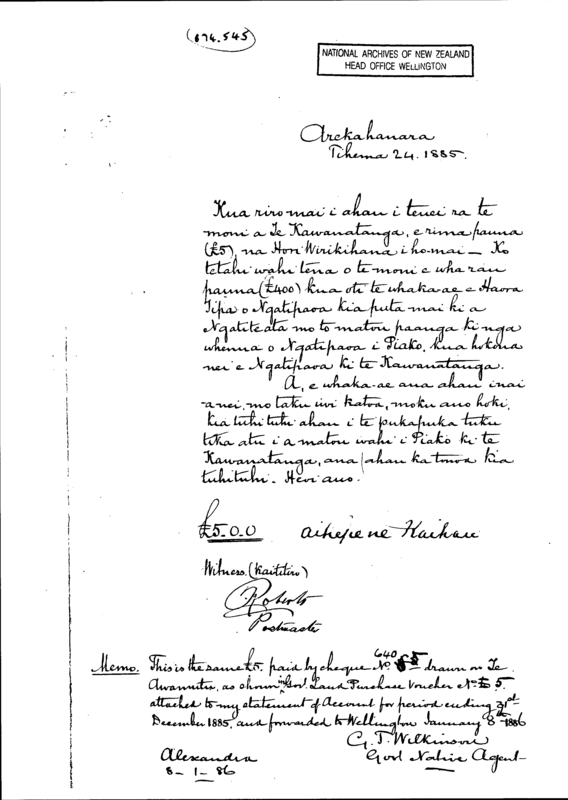 (674.545)
NATIONAL ARCHIVES OF NEW ZEALAND
HEAD OFFICE WELLINGTON
Arekahanara
Tihema 24. 1885.
Kua riro mai i ahau i tenei ra te
moni a Te Kawanatanga, e rima pauna
(£5), na Hori Wirikihana i homai – Ko
tetahi wahi tena o te moni e wha rau
pauna (£400) kua oti te whaka-ae e Haora
Tipa o Ngatipaoa kia puta mai ki a
Ngatiteata mo to matou paanga ki nga
whenua o Ngatipaoa i Piako, kua hokona
nei e Ngatipaoa ki te Kawanatanga.
A, e whaka-ae ana ahau inai
-anei, mo taku iwi katoa, moku ano hoki,
kia tuhituhi ahau i te pukapuka tuku
tika atu i a matou wahi i Piako ki te
Kawanatanga, ana ahau ka tonoa kia
tuhituhi. Heoi ano.
£5.0.0 Aihepene Kaihau
Witness. (Kaititiro)
Roberts
Postmaster
Memo. This is the same £5. paid by cheque No. 640 drawn on Te
Awamutu, as shown in Govt. Land Purchase Voucher No. 5
attached to my statement of Account for period ending 31st
December 1885, and forwarded to Wellington January 8th 1886
G. T. Wilkinson
Alexandra Govt Native Agent
8-1-86